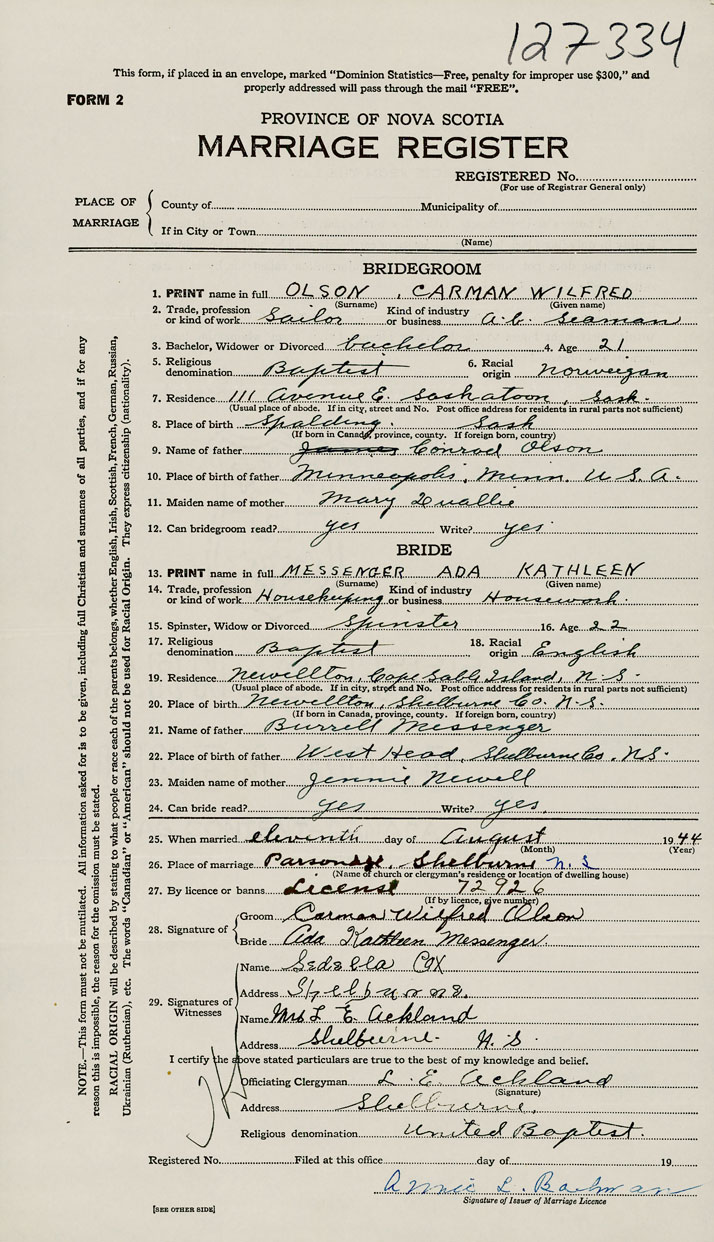 127334
This form, if placed in an envelope, marked "Dominion Statistics—Free, penalty for improper use $300," and
properly addressed will pass through the mail "FREE".
FORM 2
PROVINCE OF NOVA SCOTIA
MARRIAGE REGISTER
REGISTERED No.
(For use of Registrar General only)
PLACE OF MARRIAGE
County of Municipality of
If in City or Town
(Name)
BRIDEGROOM
1. PRINT name in full OLSON , CARMAN WILFRED
(Surname) (Given name)
2. Trade, profession or kind of work Sailor Kind of industry or business A.B. Seaman
3. Bachelor, Widower or Divorced bachelor 4. Age 21
5. Religious denomination Baptist 6. Racial origin Norweigan
7. Residence 111 Avenue E. Saskatoon, Sask.
(Usual place of abode. If in city, street and No. Post office address for residents in rural parts not sufficient)
8. Place of birth Spalding. Sask
(If born in Canada, province, county. If foreign born, country)
9. Name of father James Conrad Olson
10. Place of birth of father Minneapolis, Minn. U.S.A.
11. Maiden name of mother Mary Duallie
12. Can bridegroom read? yes Write? yes
BRIDE
13. PRINT name in full MESSENGER ADA KATHLEEN
(Surname) (Given name)
14. Trade, profession or kind of work Housekeeping Kind of industry or business Housework.
15. Spinster, Widow or Divorced Spinster 16. Age 22
17. Religious denomination Baptist 18. Racial origin English
19. Residence Newellton, Cape Sable Island, N.S.
(Usual place of abode. If in city, street and No. Post office address for residents in rural parts not sufficient)
20. Place of birth Newellton, Shelburne Co. N.S.
(If born in Canada, province, county. If foreign born, country)
21. Name of father Burrell Messenger
22. Place of birth of father West Head, Shelburne Co. N.S.
23. Maiden name of mother Jennie Newell
24. Can bride read? yes Write? yes.
25. When married eleventh day of August 1944
(Month) (Year)
26. Place of marriage Parsonage, Shelburne N.S
(Name of church or clergyman's residence or location of dwelling house)
27. By licence or banns License 72926
(If by licence, give number)
28. Signature of
Groom Carman Wilfred Olson
Bride Ada Kathleen Messenger.
29. Signatures of Witnesses
Name Sedella Cox
Address Shelburne.
Name Mrs L. E. Ackland
Address Shelburne. N.S.
I certify the above stated particulars are true to the best of my knowledge and belief.
Officiating Clergyman L. E. Ackland
(Signature)
Address Shelburne.
Religious denomination United Baptist.
Registered No. Filed at this office day of 19
Annie L. Bowman
Signature of Issuer of Marriage Licence
[SEE OTHER SIDE]
NOTE.—This form must not be mutilated. All information asked for is to be given, including full Christian and surnames of all parties, and if for any
reason this is impossible, the reason for the omission must be stated.
RACIAL ORIGIN will be described by stating to what people or race each of the parents belongs, whether English, Irish, Scottish, French, German, Russian,
Ukrainian (Ruthenian), etc. The words "Canadian" or "American" should not be used for Racial Origin. They express citizenship (nationality).